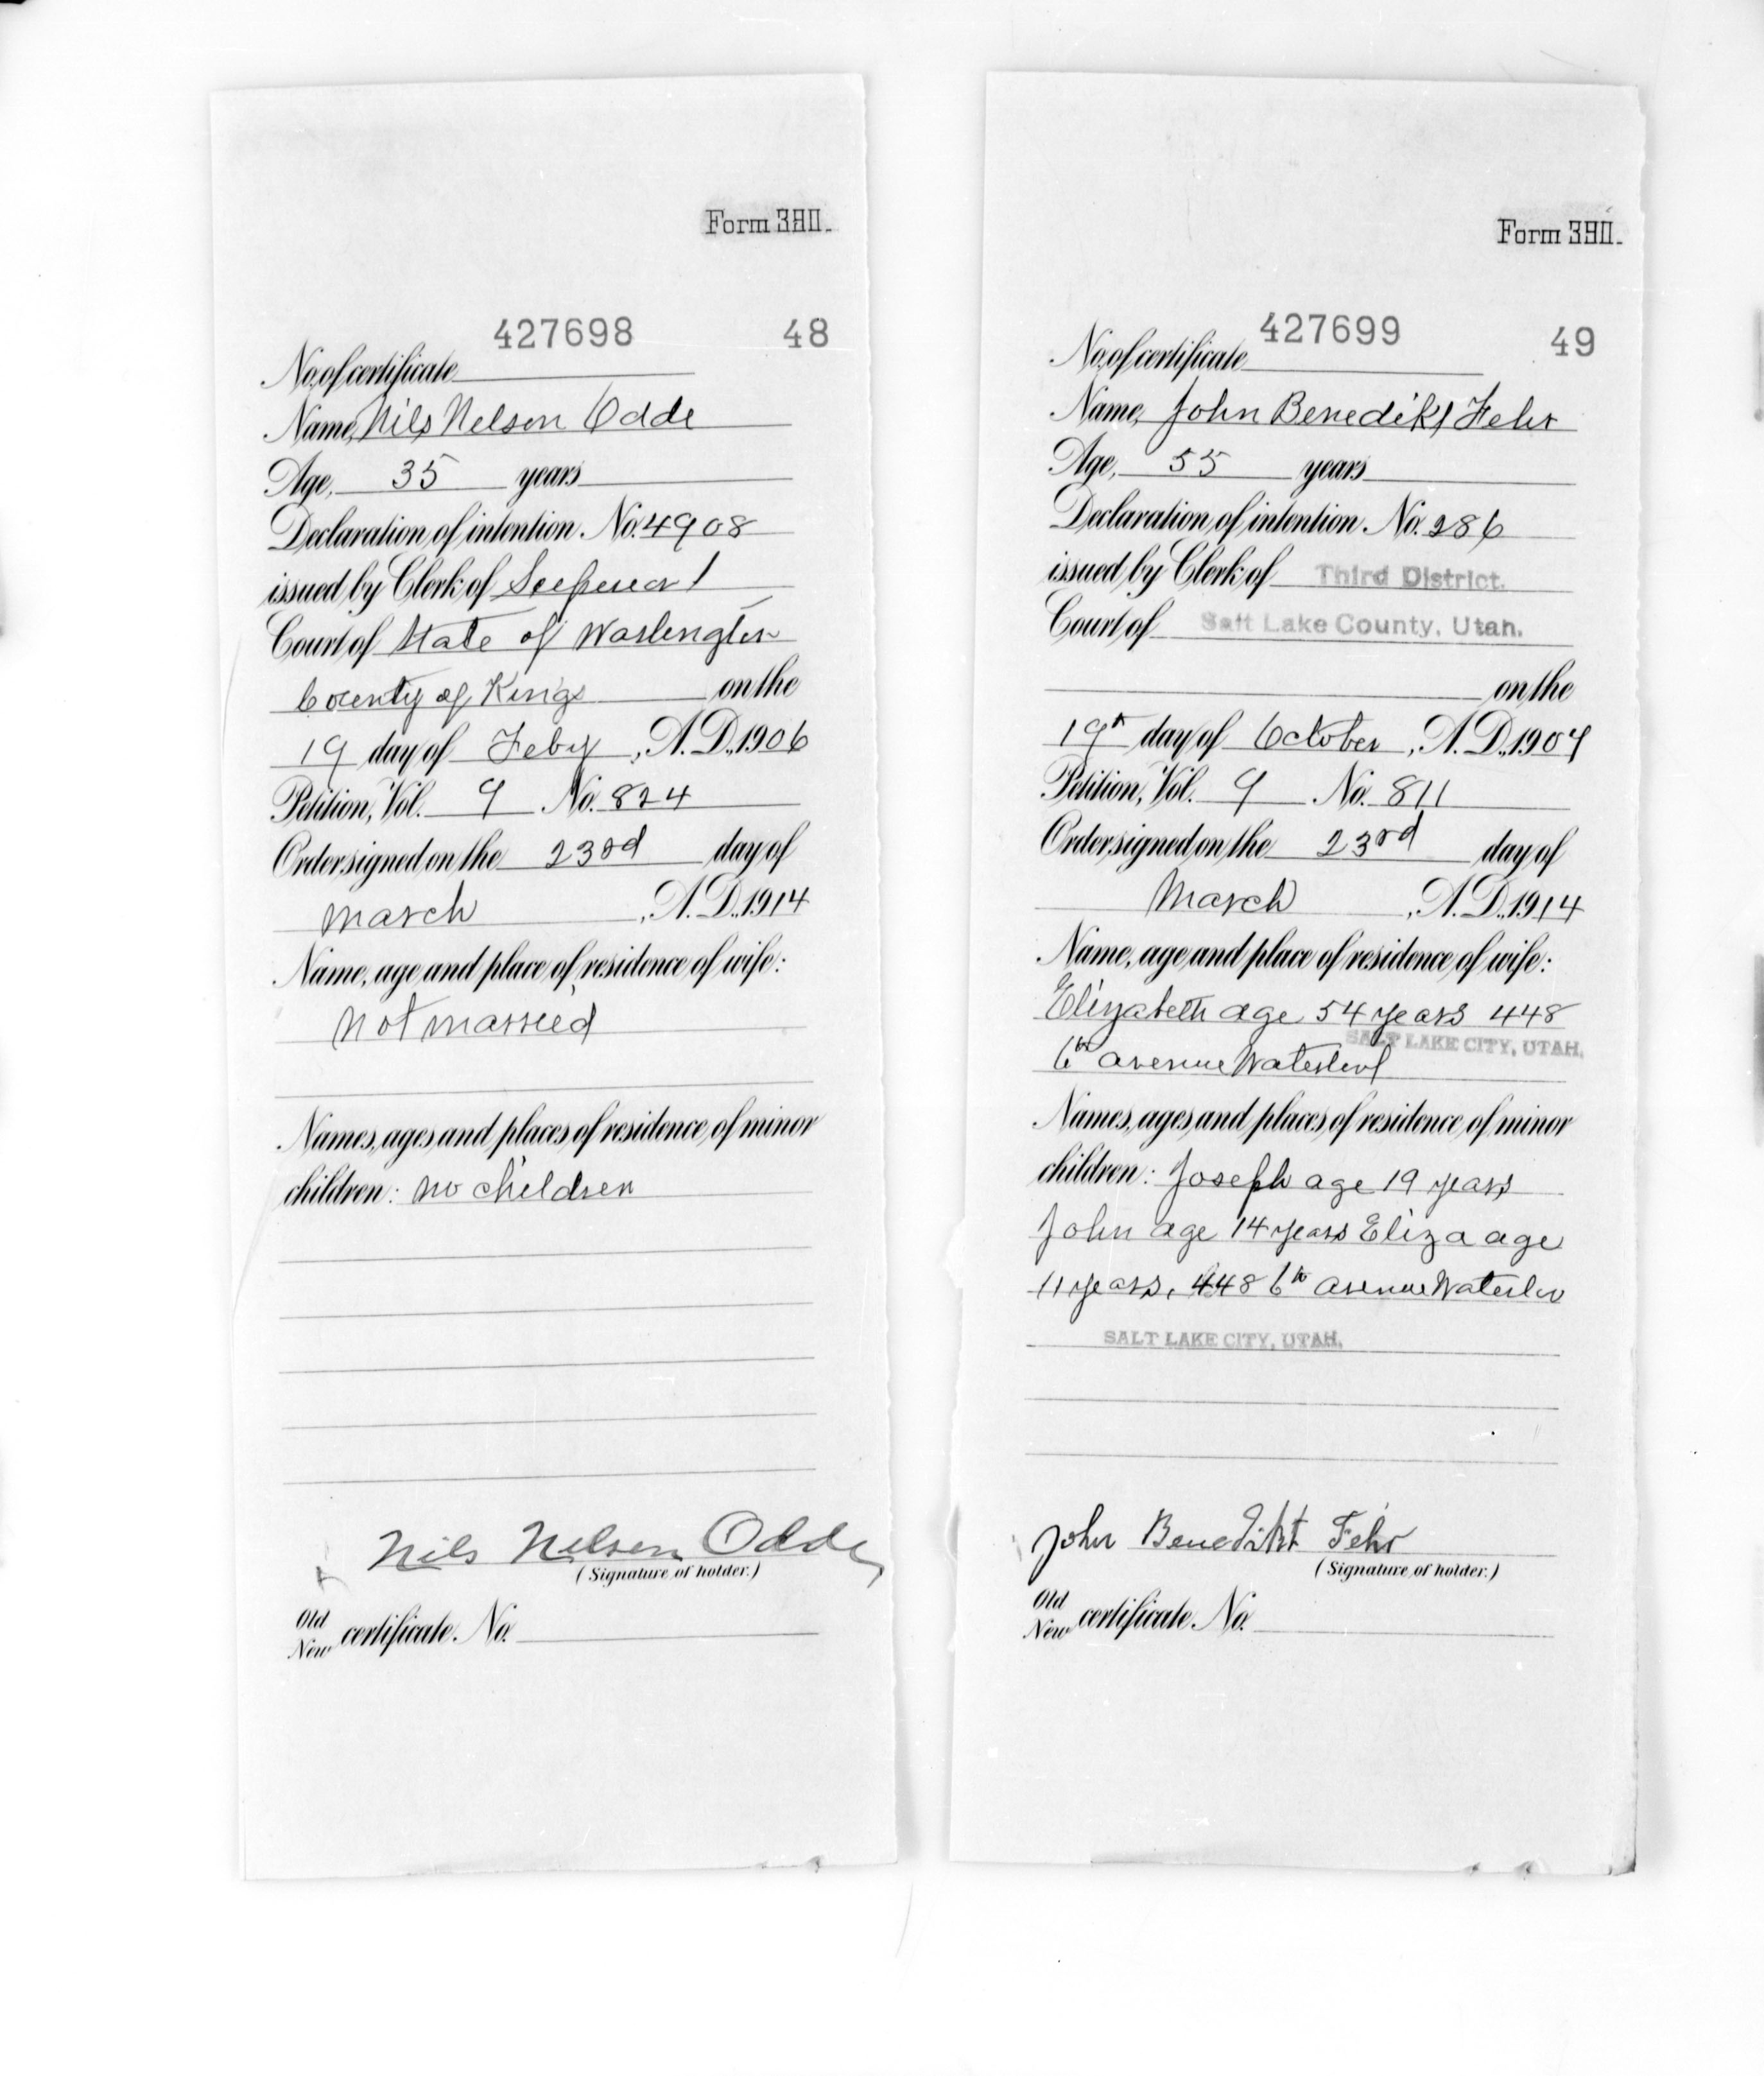 Form 380.
427698 48
No. of certificate
Name, Nils Nelson Odde
Age, 35 years
Declaration of intention. No. 4908
issued by Clerk of Superior
Court of State of Washington
County of Kings on the
19 day of Feby, A.D., 1906
Petition, Vol. 9 No. 824
Order signed on the 23rd day of
March, A.D., 1914
Name, age and place of residence of wife:
Not married
Names, ages and places of residence of minor
children: No children
Nils Nelson Odde
(Signature of holder.)
Old
New certificate No.
Form 380.
427699 49
No. of certificate
Name, John Benedikt Fehr
Age, 55 years
Declaration of intention. No. 286
issued by Clerk of Third District.
Court of Salt Lake County, Utah.
on the
19th day of October, A.D., 1907
Petition, Vol. 9 No. 811
Order signed on the 23rd day of
March, A.D., 1914
Name, age and place of residence of wife:
Elizabeth age 54 years 448
SALT LAKE CITY, UTAH.
6th avenue Waterloo
Names, ages and places of residence of minor
children: Joseph age 19 years
John age 14 years Eliza age
11 years, 448 6th avenue Waterloo
SALT LAKE CITY, UTAH.
John Benedikt Fehr
(Signature of holder.)
Old
New certificate No.